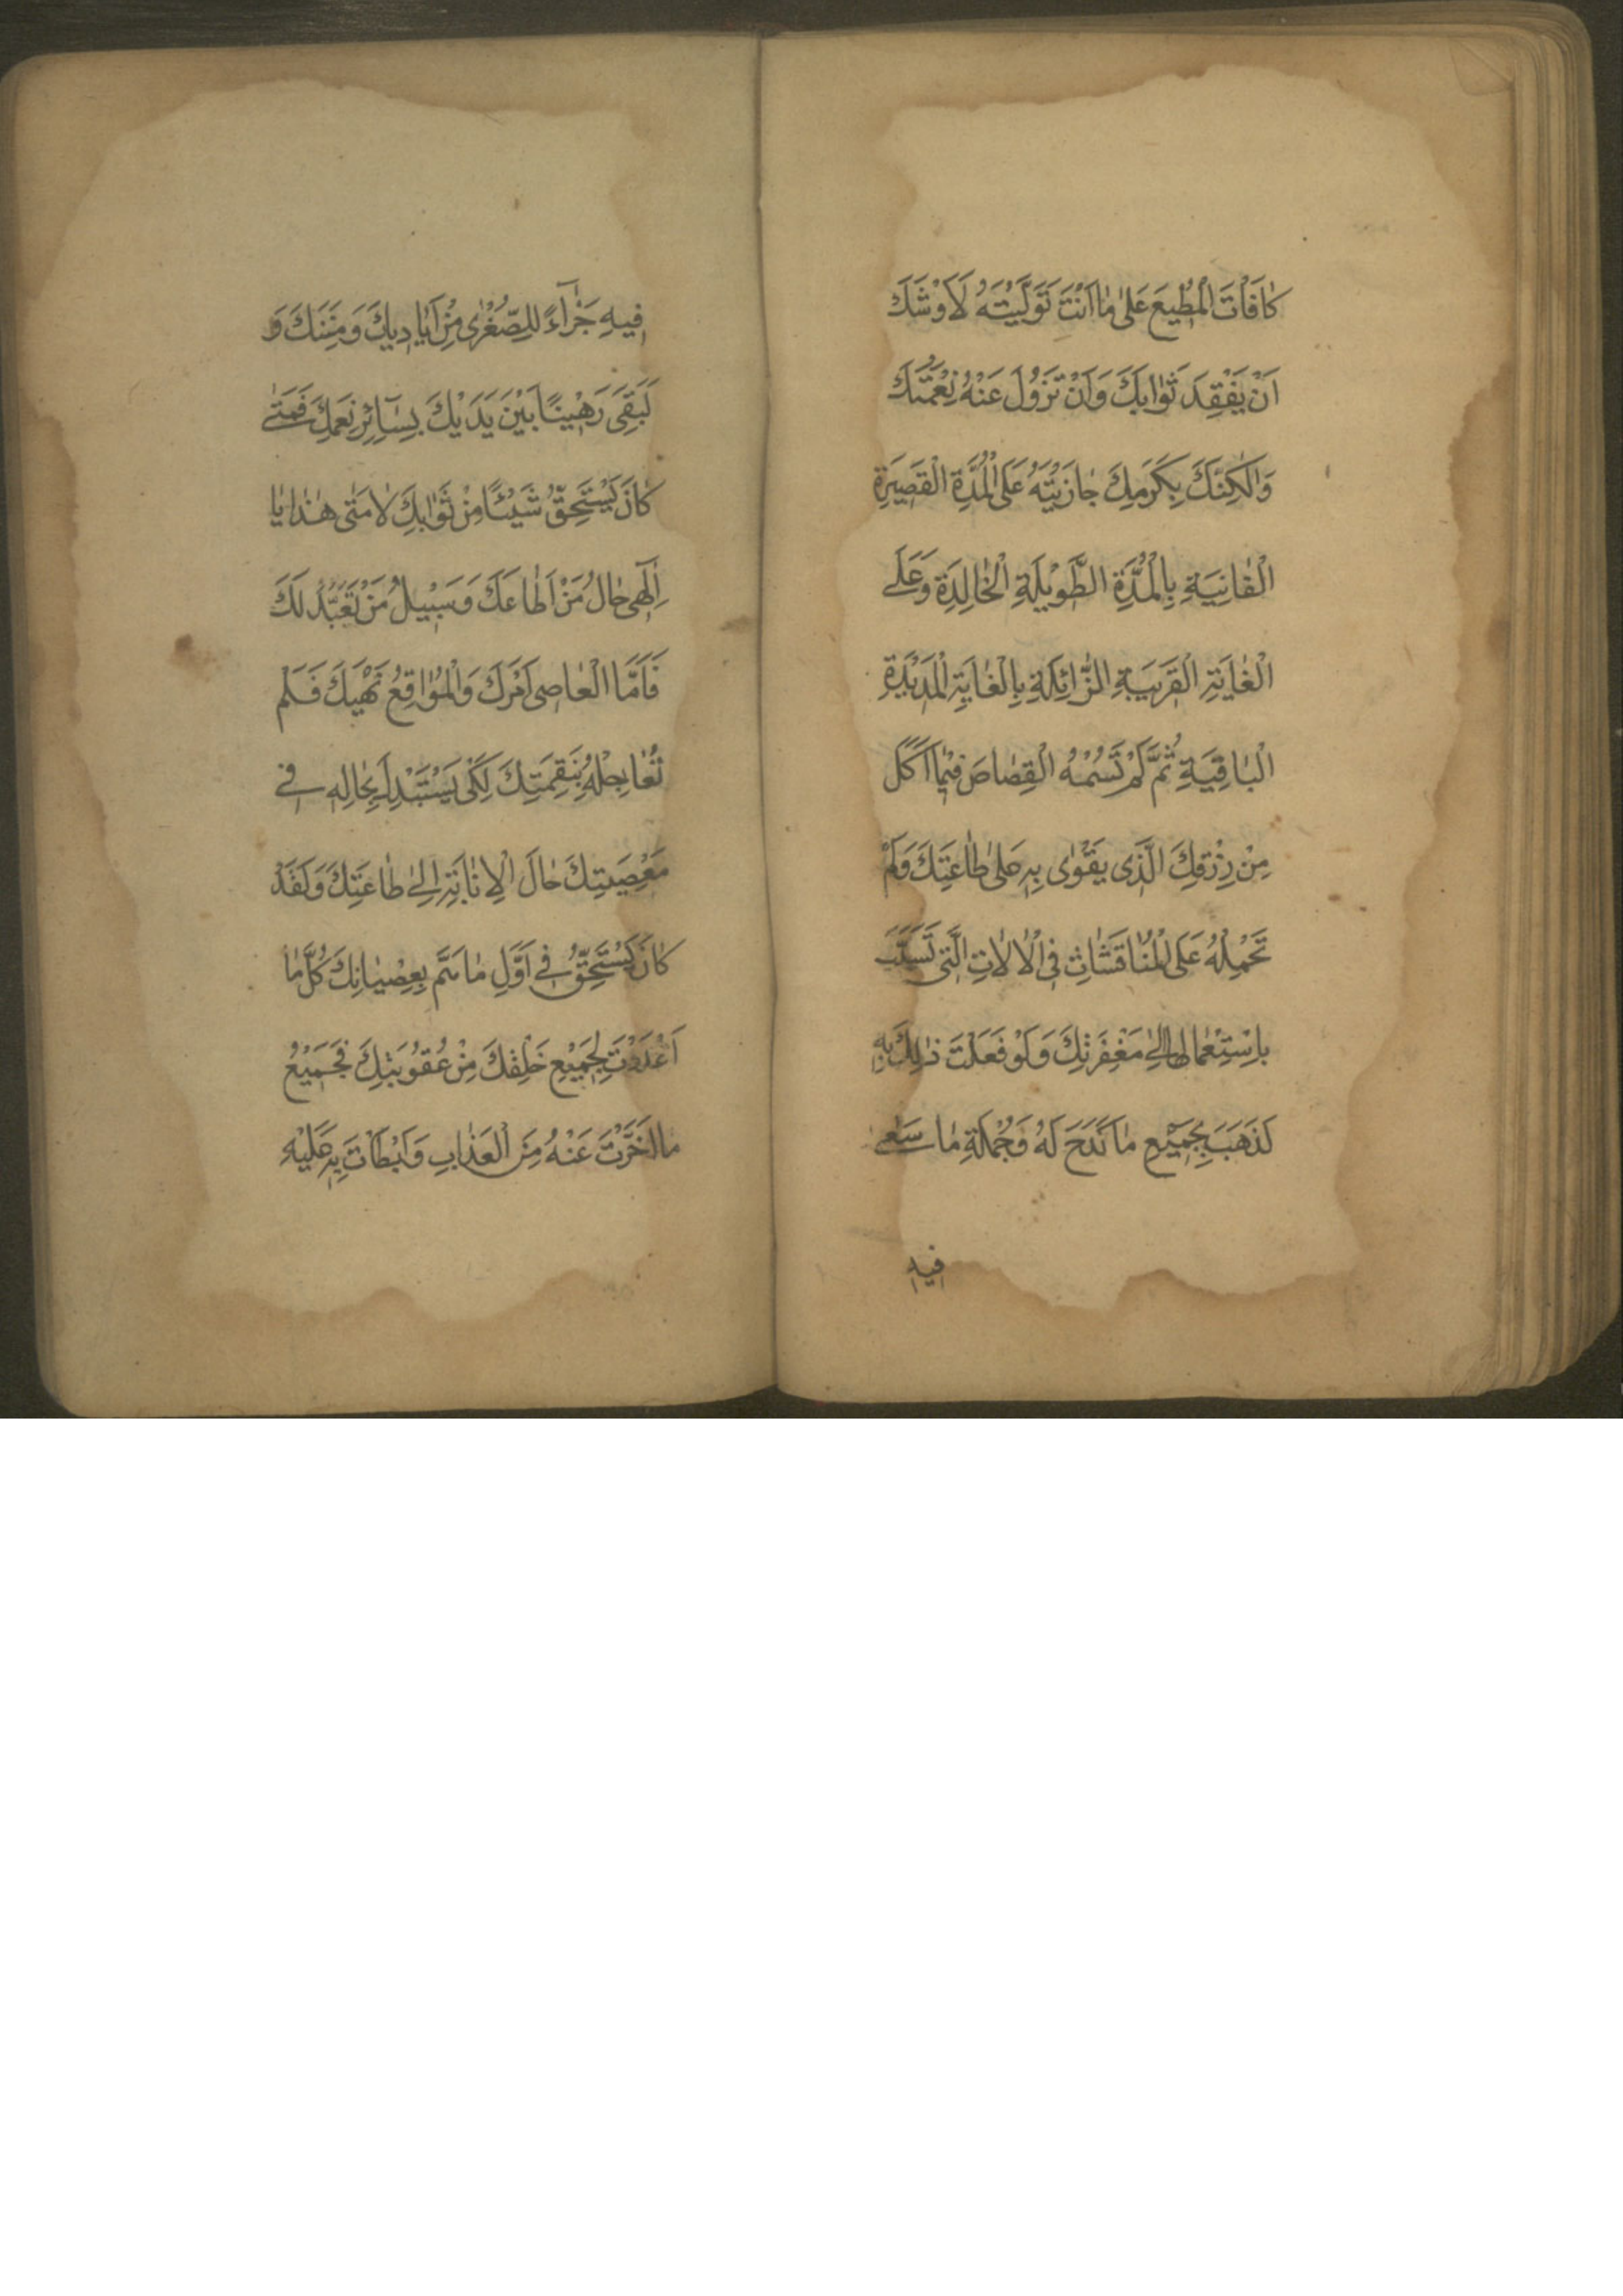 كٰافَاْتَ الْمُطٖيعَ عَلىٰ مٰا اَنْتَ تَوَلَّيْتَهُ لَاَوْشَكَ
اَنْ يَفْقِدَ ثَوٰابَكَ وَاَنْ تَزُولَ عَنْهُ نِعْمَتُكَ
وَلٰكِنَّكَ بِكَرَمِكَ جٰازَيْتَهُ عَلَى الْمُدَّةِ الْقَصيرَةِ
الْفٰانِيَةِ بِالْمُدَّةِ الطَّوٖيلَةِ الْخٰالِدَةِ وَعَلَى
الْغٰايَةِ الْقَرٖيبَةِ الزّٰائِلَةِ بِالْغٰايَةِ الْمَدٖيدَةِ
الْبٰاقِيَةِ ثُمَّ لَمْ تَسُمْهُ الْقِصٰاصَ فٖيمٰا اَكَلَ
مِنْ رِزْقِكَ الَّذٖى يَقْوٰى بِهٖ عَلىٰ طٰاعَتِكَ وَلَمْ
تَحْمِلْهُ عَلَى الْمُنٰاقَشٰاتِ فِى الْاٰلٰاتِ الَّتٖى تَسَبَّبَ
بِاسْتِعْمٰالِهٰا اِلىٰ مَغْفِرَتِكَ وَلَوْ فَعَلْتَ ذٰلِكَ بِهٖ
لَذَهَبَ بِجَمٖيعِ مٰا كَدَحَ لَهُ وَجُمْلَةِ مٰا سَعٰى
فٖيهِ
فٖيهِ جَزٰآءً لِلصُّغْرٰى مِنْ اَيٰادٖيكَ وَمِنَنِكَ وَ
لَبَقِىَ رَهٖينًا بَيْنَ يَدَيْكَ بِسٰآئِرِ نِعَمِكَ فَمَتٰى
كٰانَ يَسْتَحِقُّ شَيْئًا مِنْ ثَوٰابِكَ لٰا مَتٰى هٰذٰا يٰا
اِلٰهٖى حٰالُ مَنْ اَطٰاعَكَ وَسَبٖيلُ مَنْ تَعَبَّدَ لَكَ
فَاَمَّا الْعٰاصٖى اَمْرَكَ وَالْمُوٰاقِعُ نَهْيَكَ فَلَمْ
تُعٰاجِلْهُ بِنَقِمَتِكَ لِكَىْ يَسْتَبْدِلَ بِحٰالِهٖ فٖى
مَعْصِيَتِكَ حٰالَ الْاِنٰابَةِ اِلىٰ طٰاعَتِكَ وَلَقَدْ
كٰانَ يَسْتَحِقُّ فٖى اَوَّلِ مٰا هَمَّ بِعِصْيٰانِكَ كُلَّ مٰا
اَعْدَدْتَ لِجَمٖيعِ خَلْقِكَ مِنْ عُقُوبَتِكَ فَجَمٖيعُ
مٰا اَخَّرْتَ عَنْهُ مِنَ الْعَذٰابِ وَاَبْطَاْتَ بِهٖ عَلَيْهِ